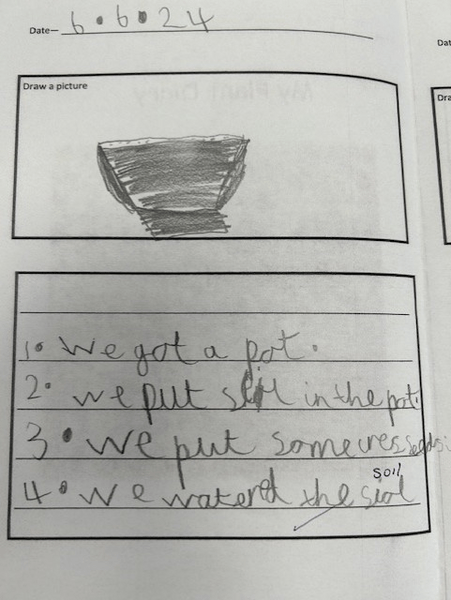 Date— 6.6.24
Dat
Draw a picture
Dra
1. We got a pot.
2. we put in the pot.
3. We put some cress seeds
soil
4. We waterd the siol